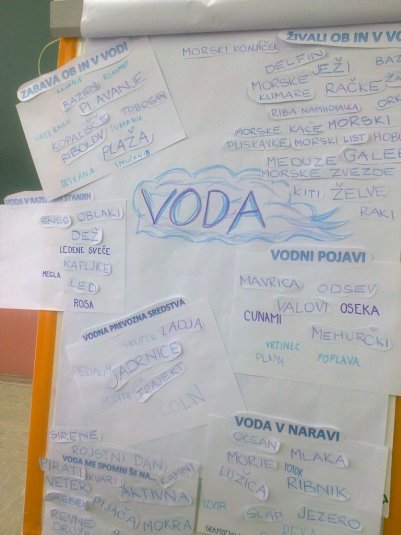 ZABAVA OB IN V VODI
BAZEN PLAVANJE
VATERPOLO KOPALIŠČE TOBOGAN
RIBOLOV
PLAŽA
DESKANJE
MORSKI KONJIČEK
ŽIVALI OB IN V VO
DELFIN
MORSKE JEŽI
KUMARE RAČKE
RIBA NAPIHOVALKA
MORSKE KAČE MORSKI
PLISKAVKE MORSKI LIST
MEDUZE GALEB
MORSKE ZVEZDE
KITI ŽELVE
RAKI
VODA
SNEG OBLAKI
DEŽ
LEDENE SVEČE
KAPLJICE
MEGLA LED
ROSA
VODNI POJAVI
MAVRICA ODSEV
VALOVI OSEKA
CUNAMI
MEHURČKI
VRTINEC
PLIMA POPLAVA
VODNA PREVOZNA SREDSTVA
LADJA
JADRNICE
TRAJEKT
ČOLN
VODA V NARAVI
OCEAN MLAKA
MORJE POTOK
LUŽICA RIBNIK
IZVIR SLAP JEZERO
REKA
SIRENE
ROJSTNI DAN
VODA ME SPOMNI ŠE NA...
PIRATI AKVARIJ
VETER AKTIVNA
PIJAČA
REVNE MOKRA